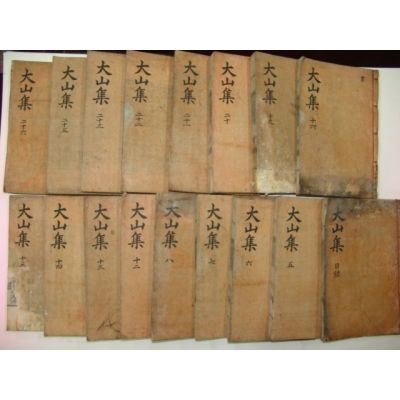 大山集 二十六
大山集 二十五
大山集 二十三
大山集 二十二
大山集 二十一
大山集 二十
大山集
大山集 十六
大山集 十五
大山集 十四
大山集 十三
大山集 十二
大山集 八
大山集 七
大山集 六
大山集 五
大山集 目録